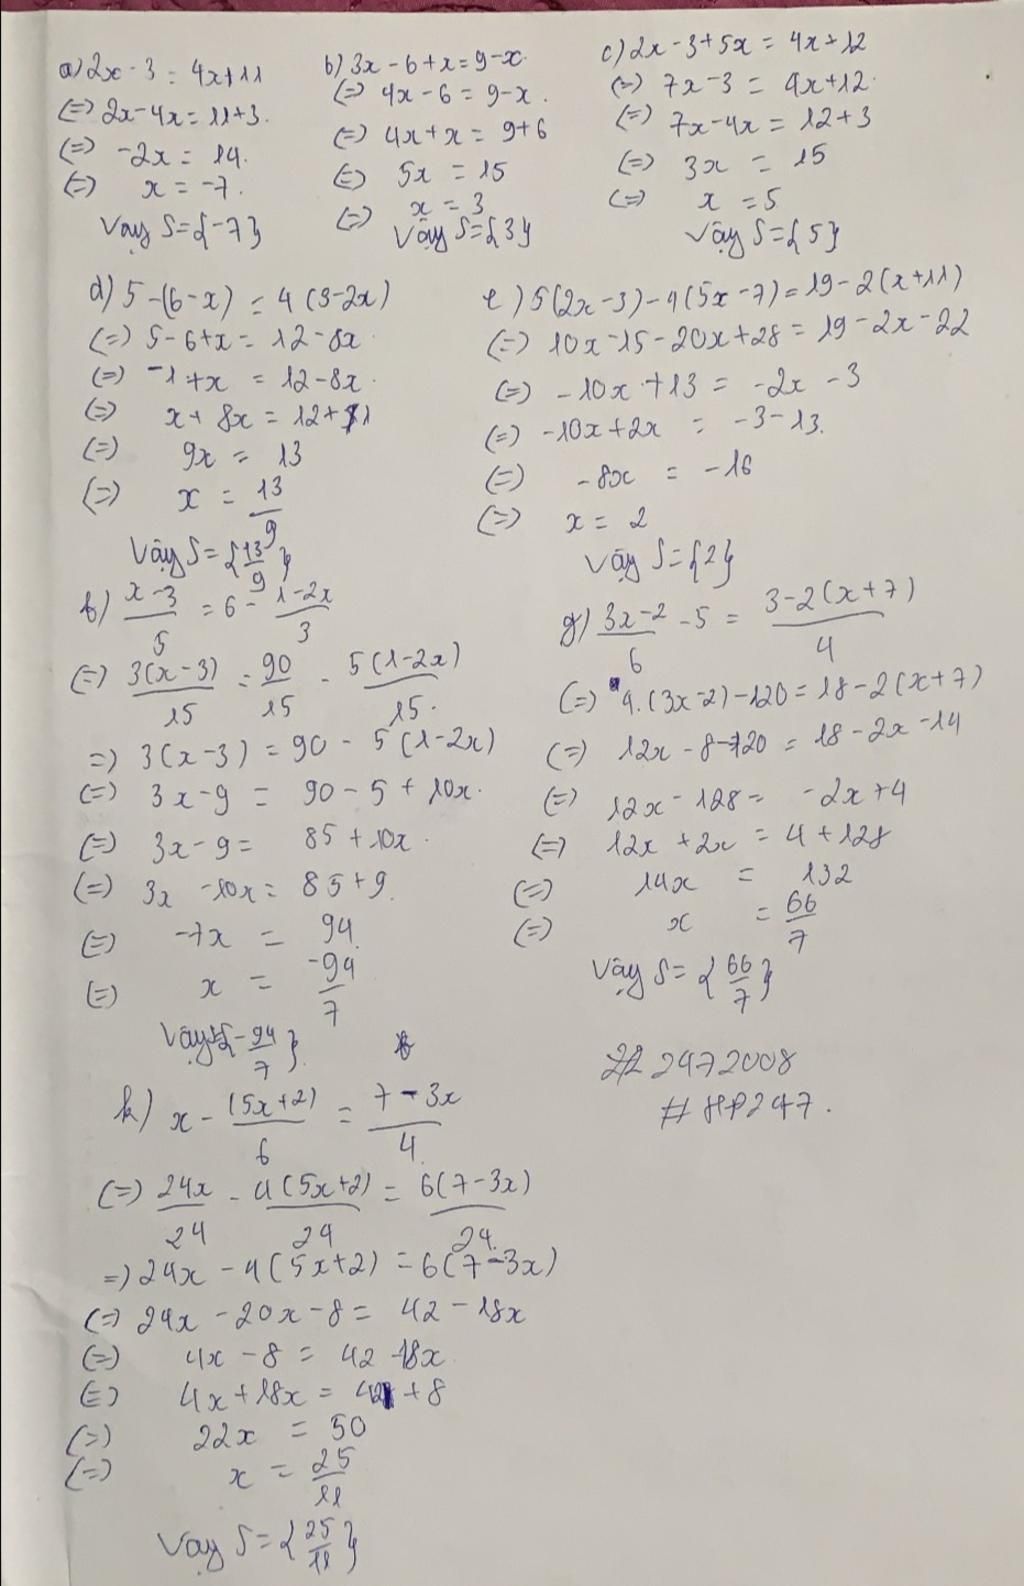 a) 2x - 3 = 4x + 11
(=) 2x - 4x = 11 + 3.
(=) -2x = 14.
(=) x = -7.
Vậy S = {-7}
b) 3x - 6 + x = 9 - x.
(=) 4x - 6 = 9 - x.
(=) 4x + x = 9 + 6
(=) 5x = 15
(=) x = 3
Vậy S = {3}
c) 2x - 3 + 5x = 4x + 12
(=) 7x - 3 = 4x + 12.
(=) 7x - 4x = 12 + 3
(=) 3x = 15
(=) x = 5
Vậy S = {5}
d) 5 - (6 - x) = 4(3 - 2x)
(=) 5 - 6 + x = 12 - 8x.
(=) -1 + x = 12 - 8x.
(=) x + 8x = 12 + 1
(=) 9x = 13
(=) x = 13/9
Vậy S = {13/9}
e) 5(2x - 3) - 4(5x - 7) = 19 - 2(x + 11)
(=) 10x - 15 - 20x + 28 = 19 - 2x - 22
(=) -10x + 13 = -2x - 3
(=) -10x + 2x = -3 - 13.
(=) -8x = -16
(=) x = 2
Vậy S = {2}
f) (x - 3)/5 = 6 - (1 - 2x)/3
(=) 3(x - 3)/15 = 90/15 - 5(1 - 2x)/15.
=) 3(x - 3) = 90 - 5(1 - 2x)
(=) 3x - 9 = 90 - 5 + 10x.
(=) 3x - 9 = 85 + 10x.
(=) 3x - 10x = 85 + 9.
(=) -7x = 94
(=) x = -94/7
Vậy S {-94/7}.
g) (3x - 2)/6 - 5 = (3 - 2(x + 7))/4
(=) 4.(3x - 2) - 120 = 18 - 2(x + 7)
(=) 12x - 8 - 120 = 18 - 2x - 14
(=) 12x - 128 = -2x + 4
(=) 12x + 2x = 4 + 128
(=) 14x = 132
(=) x = 66/7
Vậy S = {66/7}
2472008
# HP247.
h) x - (5x + 2)/6 = (7 - 3x)/4.
(=) 24x/24 - 4(5x + 2)/24 = 6(7 - 3x)/24.
=) 24x - 4(5x + 2) = 6(7 - 3x)
(=) 24x - 20x - 8 = 42 - 18x
(=) 4x - 8 = 42 - 18x
(=) 4x + 18x = 42 + 8
(=) 22x = 50
(=) x = 25/11
Vậy S = {25/11}